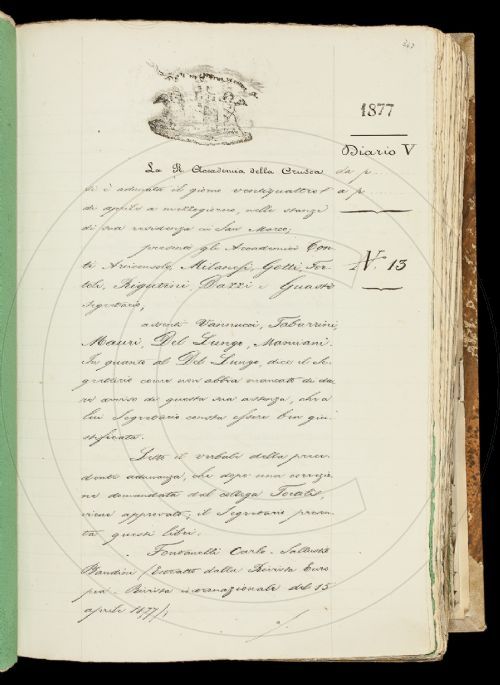 1877
Diario V
da p...
a p...
N. 13
La R. Accademia della Crusca
si è adunata il giorno ventiquattro
di aprile a mezzogiorno, nelle stanze
di sua residenza in San Marco;
presenti gli Accademici Con-
ti Arciconsolo, Milanesi, Gotti, Tor-
toli, Rigutini, Dazzi e Guasti
segretario;
assenti Vannucci, Tabarrini,
Mauri, Del Lungo, Mamiani.
In quanto al Del Lungo, dice il Se-
gretario come non abbia mancato di da-
re avviso di questa sua assenza, che a
lui Segretario consta essere ben giu-
stificata.
Letto il verbale della prece-
dente adunanza, che dopo una correzio-
ne domandata dal collega Tortoli,
viene approvato, il Segretario presen-
ta questi libri.
Fontanelli Carlo. Sallustio
Bandini /Estratto dalla Rivista Euro
pea. Rivista internazionale del 15
aprile 1877/;